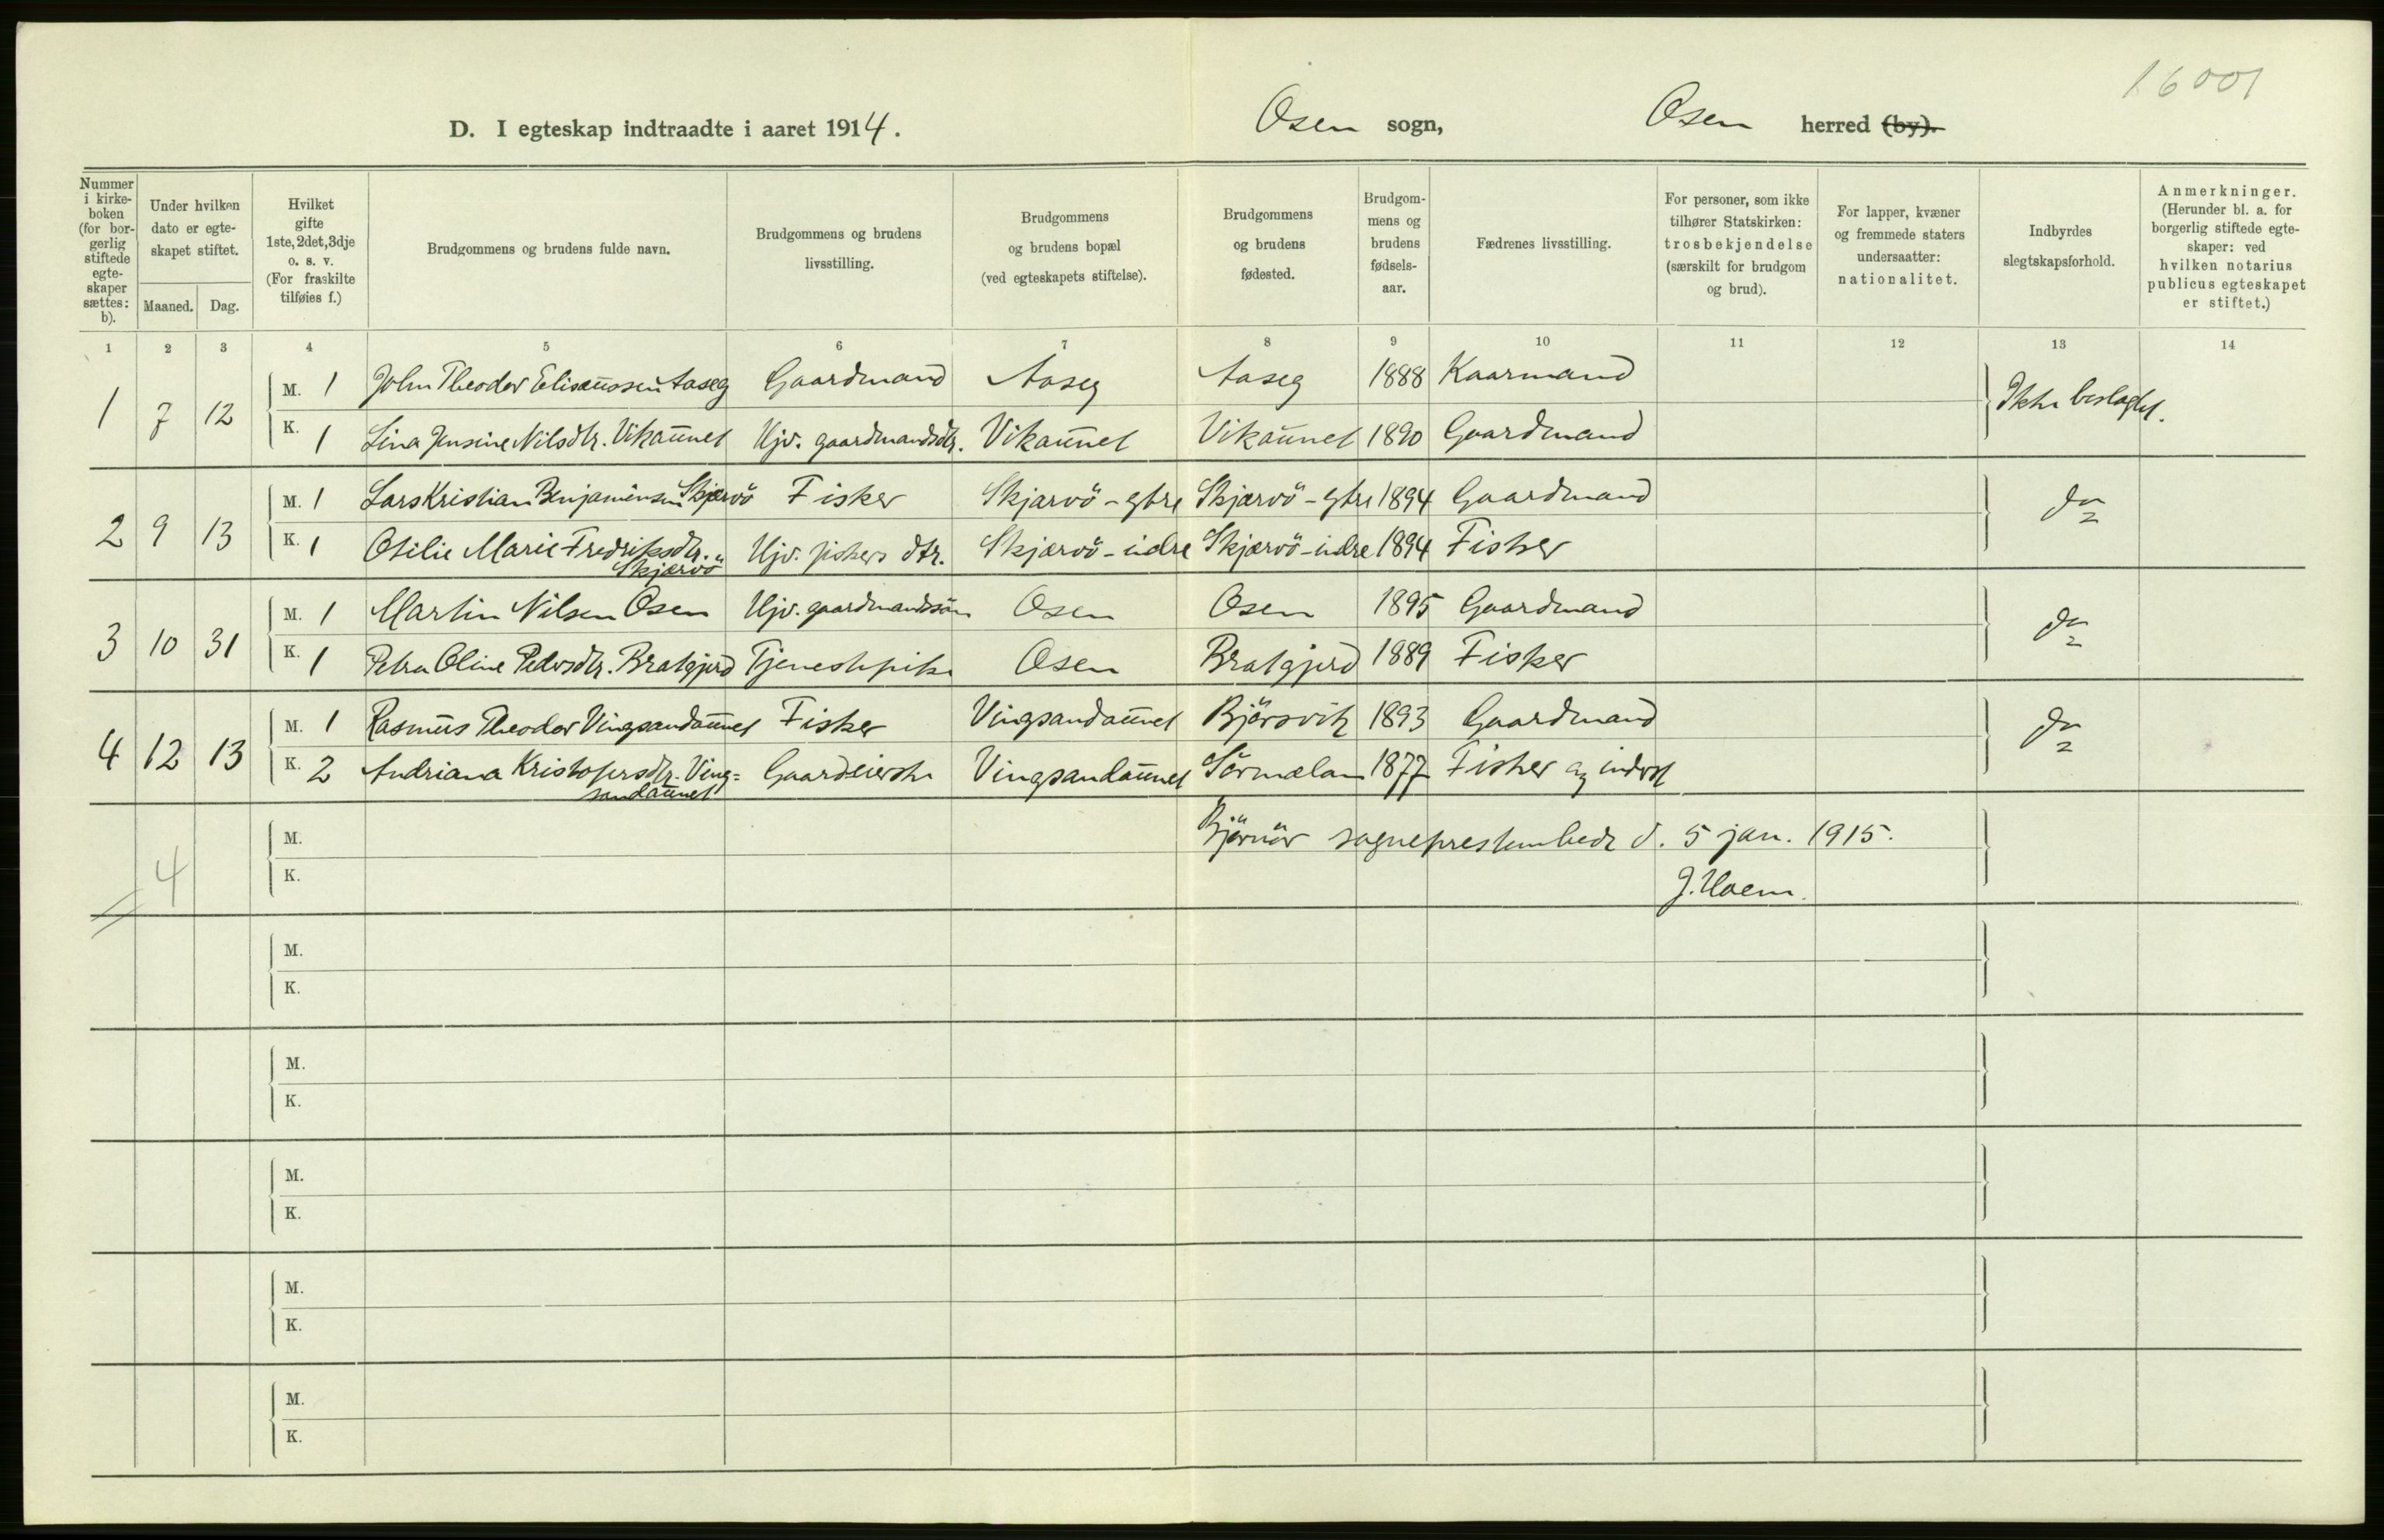 16001
D. I egteskap indtraadte i aaret 1914. Osen sogn, Osen herred (by).
Nummer i kirkeboken (for borgerlig stiftede egteskaper sættes: b).
Under hvilken dato er egteskapet stiftet.
Maaned. Dag.
Hvilket gifte 1ste, 2det, 3dje o. s. v. (For fraskilte tilføies f.)
Brudgommens og brudens fulde navn.
Brudgommens og brudens livsstilling.
Brudgommens og brudens bopæl (ved egteskapets stiftelse).
Brudgommens og brudens fødested.
Brudgommens og brudens fødselsaar.
Fædrenes livsstilling.
For personer, som ikke tilhører Statskirken: trosbekjendelse (særskilt for brudgom og brud).
For lapper, kvæner og fremmede staters undersaatter: nationalitet.
Indbyrdes slegtskapsforhold.
Anmerkninger. (Herunder bl. a. for borgerlig stiftede egteskaper: ved hvilken notarius publicus egteskapet er stiftet.)
1 2 3 4 5 6 7 8 9 10 11 12 13 14
1 7 12 M. 1 John Theodor Eliseussen Aaseg Gaardmand Aaseg Aaseg 1888 Kaarmand Ikke beslagtet.
K. 1 Lina Jensine Nilsdtr. Vikaunet Hjv. gaardmandsdtr. Vikaunet Vikaunet 1890 Gaardmand
2 9 13 M. 1 Lars Kristian Benjaminsen Skjærvö Fisker Skjærvö-ytre Skjærvö-ytre 1894 Gaardmand do
K. 1 Otilie Marie Fredriksdtr. Skjærvö Hjv. fiskers dtr. Skjærvö-indre Skjærvö-indre 1894 Fisker
3 10 31 M. 1 Martin Nilsen Osen Hjv. gaardmandssön Osen Osen 1895 Gaardmand do
K. 1 Petra Oline Pedersdtr. Bratgjerd Tjenestepike Osen Bratgjerd 1889 Fisker
4 12 13 M. 1 Rasmus Theodor Vingsandaunet Fisker Vingsandaunet Björsvik 1893 Gaardmand do
K. 2 Andriana Kristofersdtr. Ving=sandaunet Gaardeierske Vingsandaunet Sörmelan 1877 Fisker og inderst
4 M. Björnör sogneprestembede d. 5 jan. 1915.
K. J. Hoem.
M.
K.
M.
K.
M.
K.
M.
K.
M.
K.